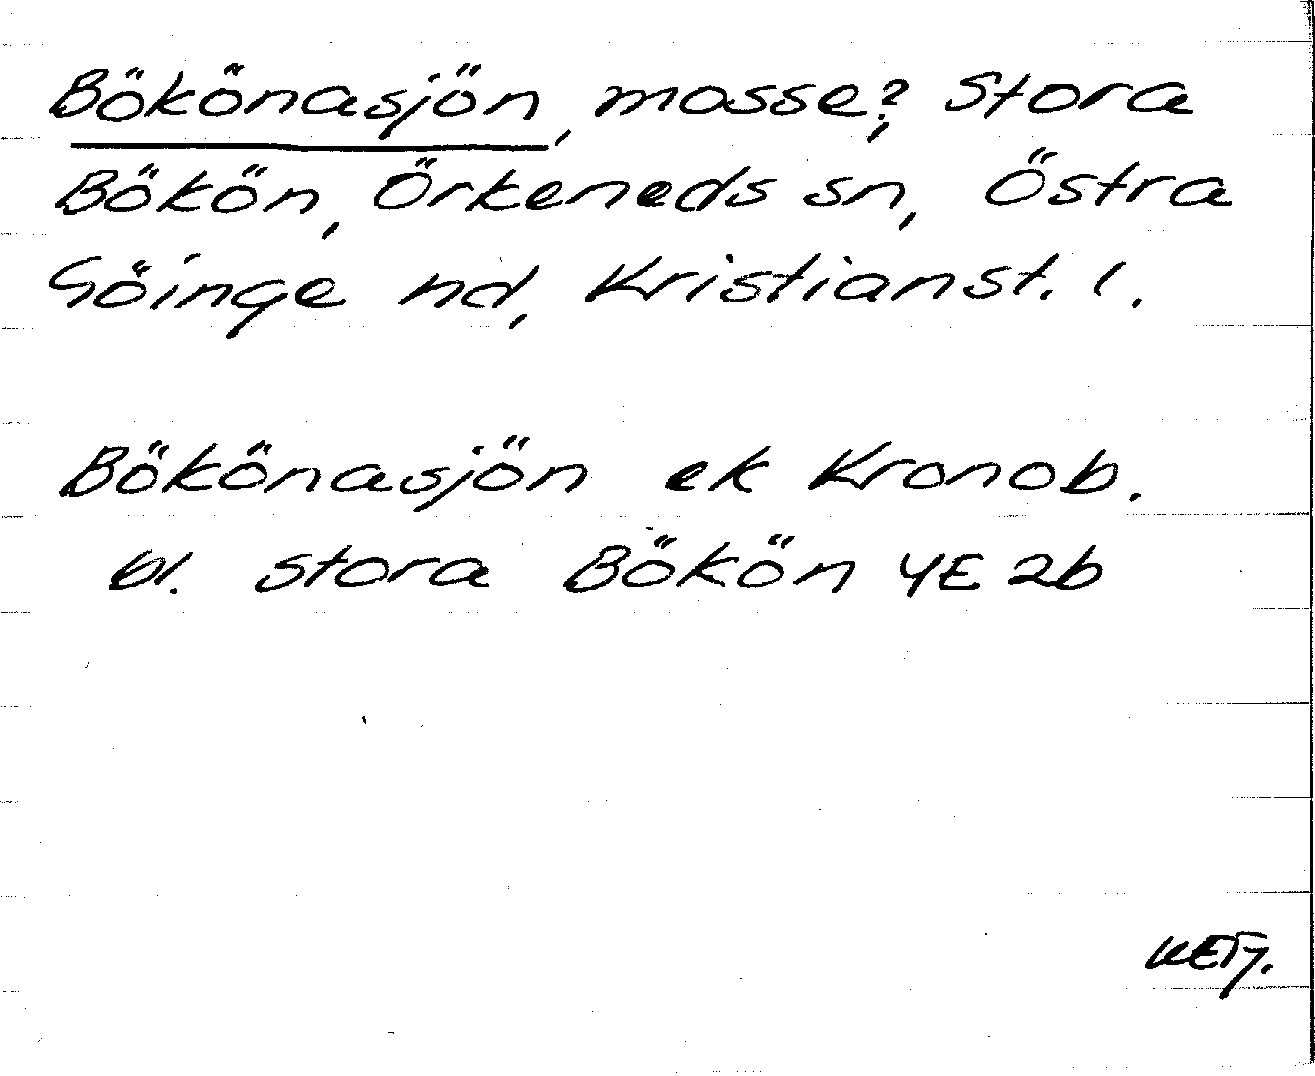 Bökönasjön, mosse?, Stora
Bökön, Örkeneds sn, Östra
Göinge hd, Kristianst. l.
Bökönasjön ek Kronob.
bl. stora Bökön 4E 2b